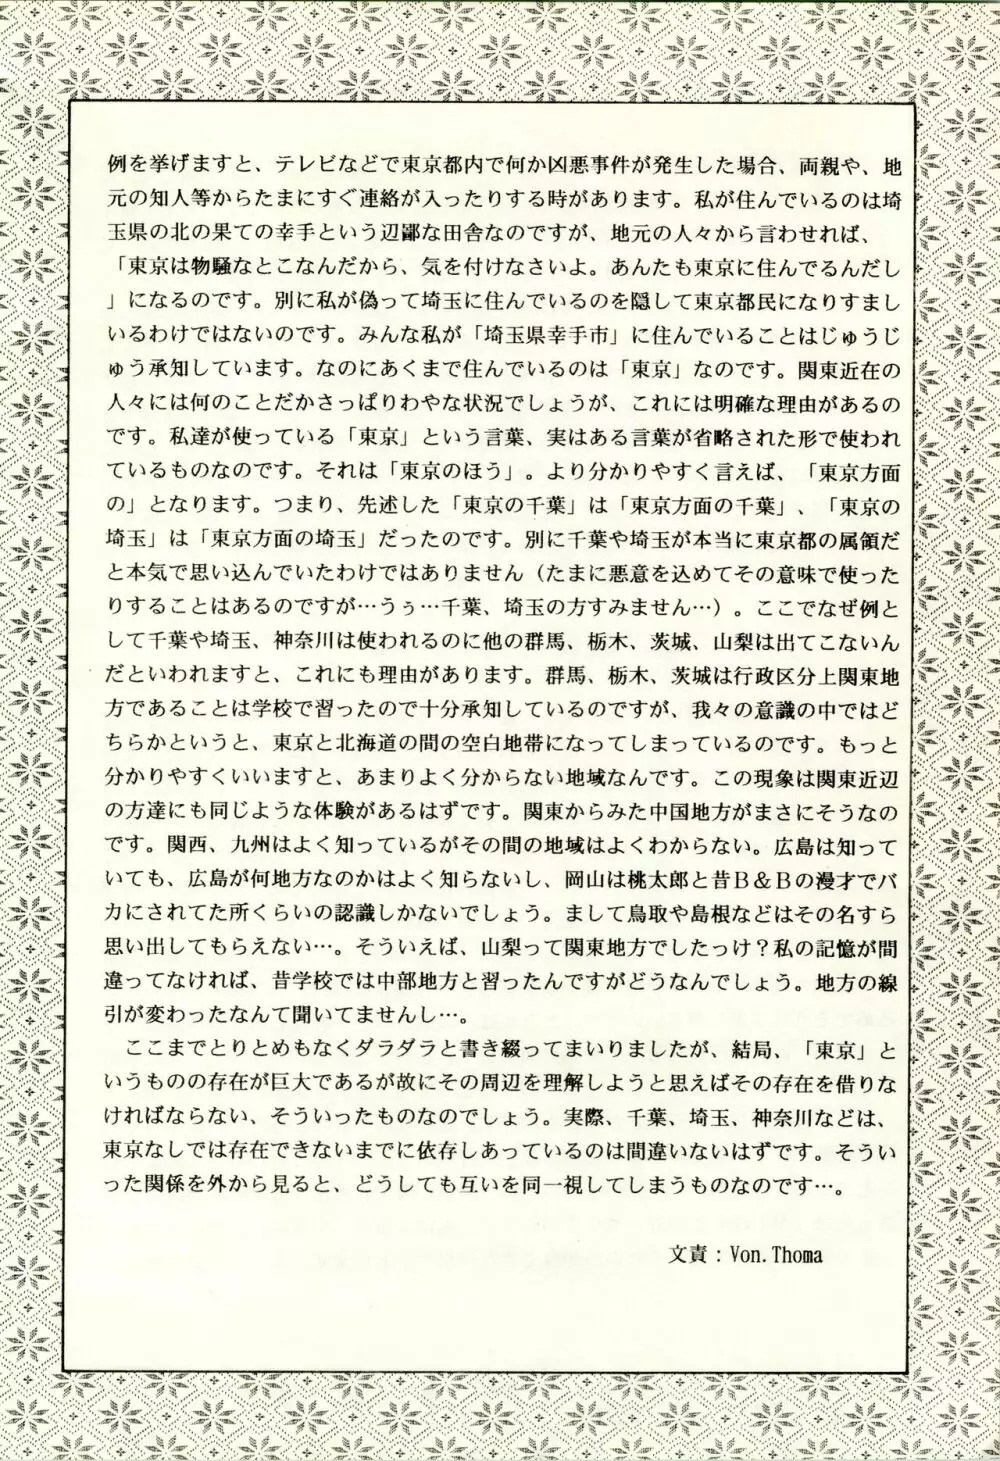 例を挙げますと、テレビなどで東京都内で何か凶悪事件が発生した場合、両親や、地
元の知人等からたまにすぐ連絡が入ったりする時があります。私が住んでいるのは埼
玉県の北の果ての幸手という辺鄙な田舎なのですが、地元の人々から言わせれば、
「東京は物騒なとこなんだから、気を付けなさいよ。あんたも東京に住んでるんだし
」になるのです。別に私が偽って埼玉に住んでいるのを隠して東京都民になりすまし
いるわけではないのです。みんな私が「埼玉県幸手市」に住んでいることはじゅうじ
ゅう承知しています。なのにあくまで住んでいるのは「東京」なのです。関東近在の
人々には何のことだかさっぱりわやな状況でしょうが、これには明確な理由があるの
です。私達が使っている「東京」という言葉、実はある言葉が省略された形で使われ
ているものなのです。それは「東京のほう」。より分かりやすく言えば、「東京方面
の」となります。つまり、先述した「東京の千葉」は「東京方面の千葉」、「東京の
埼玉」は「東京方面の埼玉」だったのです。別に千葉や埼玉が本当に東京都の属領だ
と本気で思い込んでいたわけではありません（たまに悪意を込めてその意味で使った
りすることはあるのですが…うぅ…千葉、埼玉の方すみません…）。ここでなぜ例と
して千葉や埼玉、神奈川は使われるのに他の群馬、栃木、茨城、山梨は出てこないん
だといわれますと、これにも理由があります。群馬、栃木、茨城は行政区分上関東地
方であることは学校で習ったので十分承知しているのですが、我々の意識の中ではど
ちらかというと、東京と北海道の間の空白地帯になってしまっているのです。もっと
分かりやすくいいますと、あまりよく分からない地域なんです。この現象は関東近辺
の方達にも同じような体験があるはずです。関東からみた中国地方がまさにそうなの
です。関西、九州はよく知っているがその間の地域はよくわからない。広島は知って
いても、広島が何地方なのかはよく知らないし、岡山は桃太郎と昔Ｂ＆Ｂの漫才でバ
カにされてた所くらいの認識しかないでしょう。まして鳥取や島根などはその名すら
思い出してもらえない…。そういえば、山梨って関東地方でしたっけ？私の記憶が間
違ってなければ、昔学校では中部地方と習ったんですがどうなんでしょう。地方の線
引が変わったなんて聞いてませんし…。
　ここまでとりとめもなくダラダラと書き綴ってまいりましたが、結局、「東京」と
いうものの存在が巨大であるが故にその周辺を理解しようと思えばその存在を借りな
ければならない、そういったものなのでしょう。実際、千葉、埼玉、神奈川などは、
東京なしでは存在できないまでに依存しあっているのは間違いないはずです。そうい
った関係を外から見ると、どうしても互いを同一視してしまうものなのです…。
文責：Von.Thoma